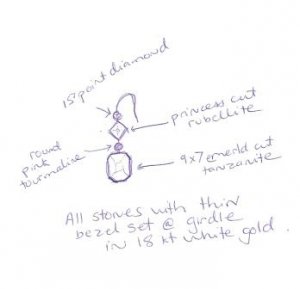 18 point diamond
princess cut
rubellite
round
pink
tourmaline
9x7 emerld cut
tanzanite
All stones with thin
bezel set @ girdle
in 18 kt white gold.